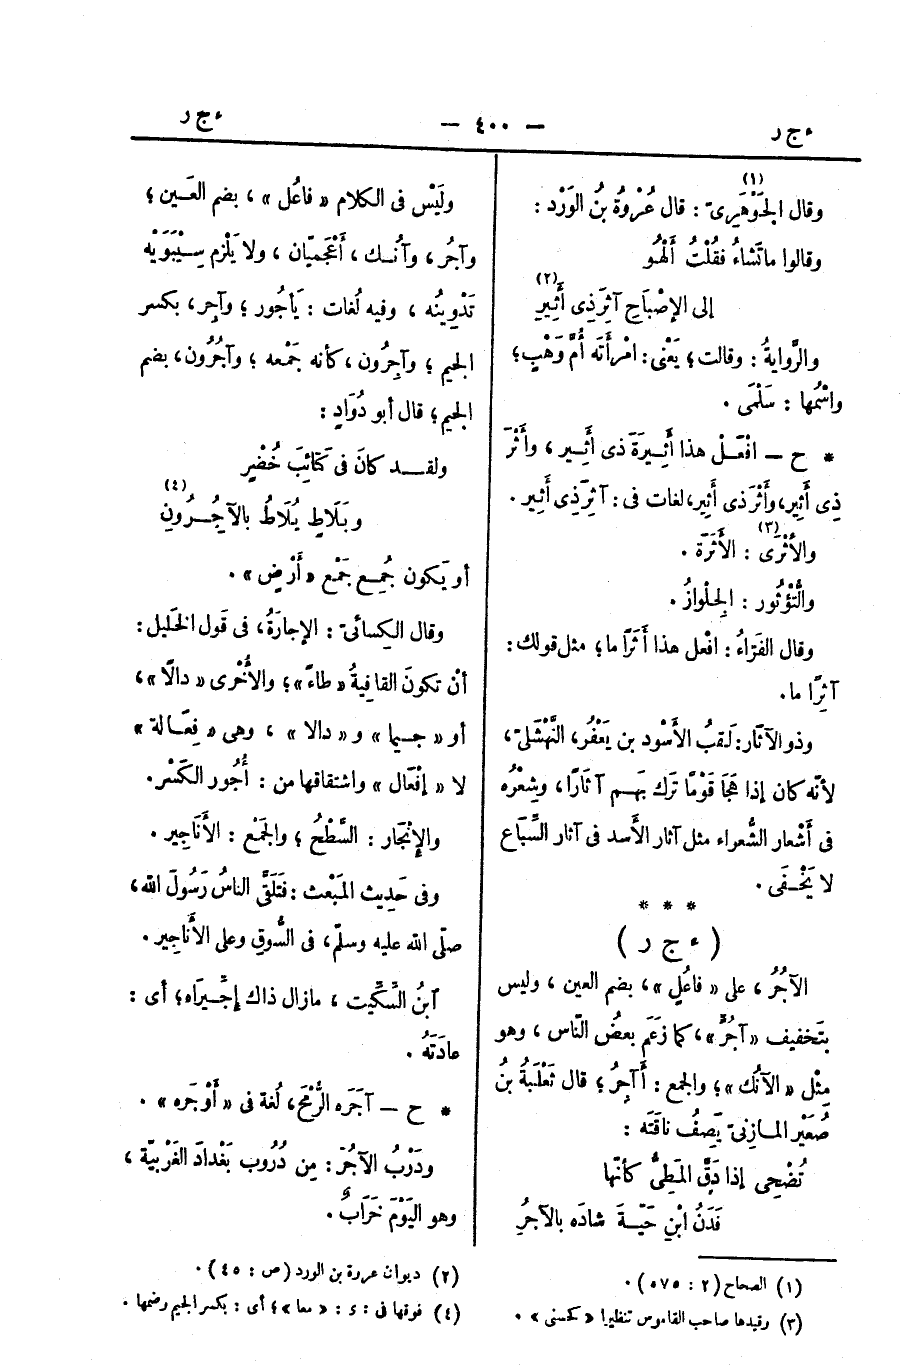 ءجر
— ٤٠٠ —
ءجر
وقال الجَوْهَرِىّ (١): قال عُرْوةُ بنُ الوَرْد:
وقالوا ماتَشاءُ فقُلْتُ ألْهُو
إلى الإصْباحِ آثِرَذِى أَثِيرِ (٢)
والرِّوايةُ: وقالت؛ يَعْنى: امْرأتَه أُمَّ وَهْبٍ؛
واسْمُها: سَلْمَى.
* ح — افْعَلْ هذا أَثِيرَةَ ذى أَثِير، وأَثْرَ
ذِى أَثِير، وأَثْرَ ذى أَثِير، لغات فى: آثِرَ ذِى أَثِير.
والأَثْرَى (٣): الأَثَرَة.
والتُّؤْثُور: الجِلْوازُ.
وقال الفَرّاءُ: افْعل هذا أَثَرًا ما؛ مثل قولك:
آثِرًا ما.
وذو الآثار: لَقبُ الأسْود بن يَعْفُر، النَّهْشَلىّ،
لأنّه كان إذا هَجَا قَوْمًا تَرك بَهم آثارًا، وشِعْرُه
فى أَشْعار الشُّعراء مثل آثار الأَسد فى آثار السِّباع
لا يَخْفَى.
* * *
(ءجر)
الآجُرُ، على «فاعُلٍ»، بضم العين، وليس
بتَخفيف «آجُرٍّ»، كما زَعَم بعضُ النّاس، وهو
مِثْل «الآنُك»؛ والجمع: أَآجِرُ؛ قال ثَعْلَبَةُ بنُ
صُعَيْر المازنىّ يَصِفُ ناقَتَه:
تُضْحِى إذا دَقَّ المَطِىُّ كأنّها
فَدَنُ ابْنِ حَيّةَ شادَه بالآجُرِ
ولَيْس فى الكلام «فاعُل»، بضم العَين؛
وآجُر، وآنُك، أَعْجَميّان، ولا يَلْزم سِيْبَوَيْه
تَدْوِينُه، وفيه لُغات: يَأْجُور؛ وآجِر، بكسر
الجيم؛ وآجِرُون، كأنه جَمْعه؛ وآجُرُون، بضم
الجيم؛ قال أبو دُوَادٍ:
ولقد كانَ فى كَتائِبَ خُضْرٍ
وبَلَاطٍ يُلَاطُ بالآجُِرُونِ (٤)
أو يَكون جُمِع جَمْع «أَرْضٍ».
وقال الكِسائىّ: الإجارَةُ، فى قَول الخَليل:
أنْ تكونَ القافِيةُ «طاءً»؛ والأُخْرى «دالًا»،
أو «جيما» و«دالا»، وهى «فِعَالة»
لا «إفْعَال» واشتقاقها من: أُجُور الكَسْر.
والإنْجَار: السَّطْحُ؛ والجَمْع: الأَناجِير.
وفى حَدِيث المَبْعث: فتَلَقَّى الناسُ رَسُولَ الله،
صلّى الله عليه وسلّم، فى السُّوق وعلى الأَناجِير.
ابنُ السِّكِّيت، مازال ذاك إجِّيرَاه؛ أى:
عادَتَهُ.
* ح — آجَرَه الرُّمْحَ، لُغة فى «أَوْجَره».
ودَرْبُ الآجُر: مِن دُرُوب بَغْدادَ الغَرْبيّة،
وهو اليَوْمَ خَرَابٌ.
(١) الصحاح (٢: ٥٧٥).
(٢) ديوان عروة بن الورد (ص: ٤٥).
(٣) وقيدها صاحب القاموس تنظيرا «كحسنى».
(٤) فوقها فى: s: «معا»؛ أى: بكسر الجيم وضمها.